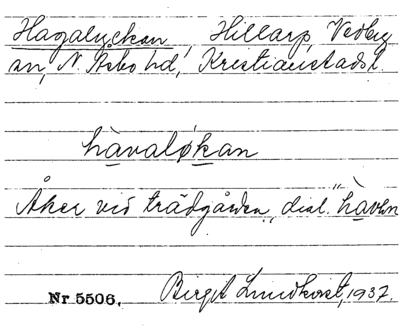 Hagalyckan, Hillarp, Vedby
sn, N. Åsbo hd, Kristianstads l.
hàvaløkan
Åker vid trädgården, dial. "hàven
Nr 5506. Birgit Lundkvist, 1937.